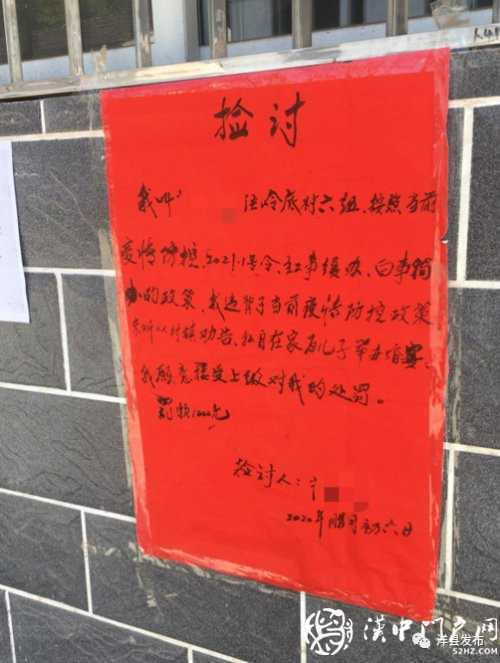 捡讨
我叫
住岭底村六组、按照当前
疫情防控、2021.1号令、红事缓办、白事简
办的政策、我违背了当前疫情防控政策
未听从村镇劝告、私自在家为儿子举办婚宴、
我愿意接受上级对我的处罚。
罚款1000元
捡讨人：宁
2020年腊月初六日
汉中门户网
洋县发布
52HZ.COM